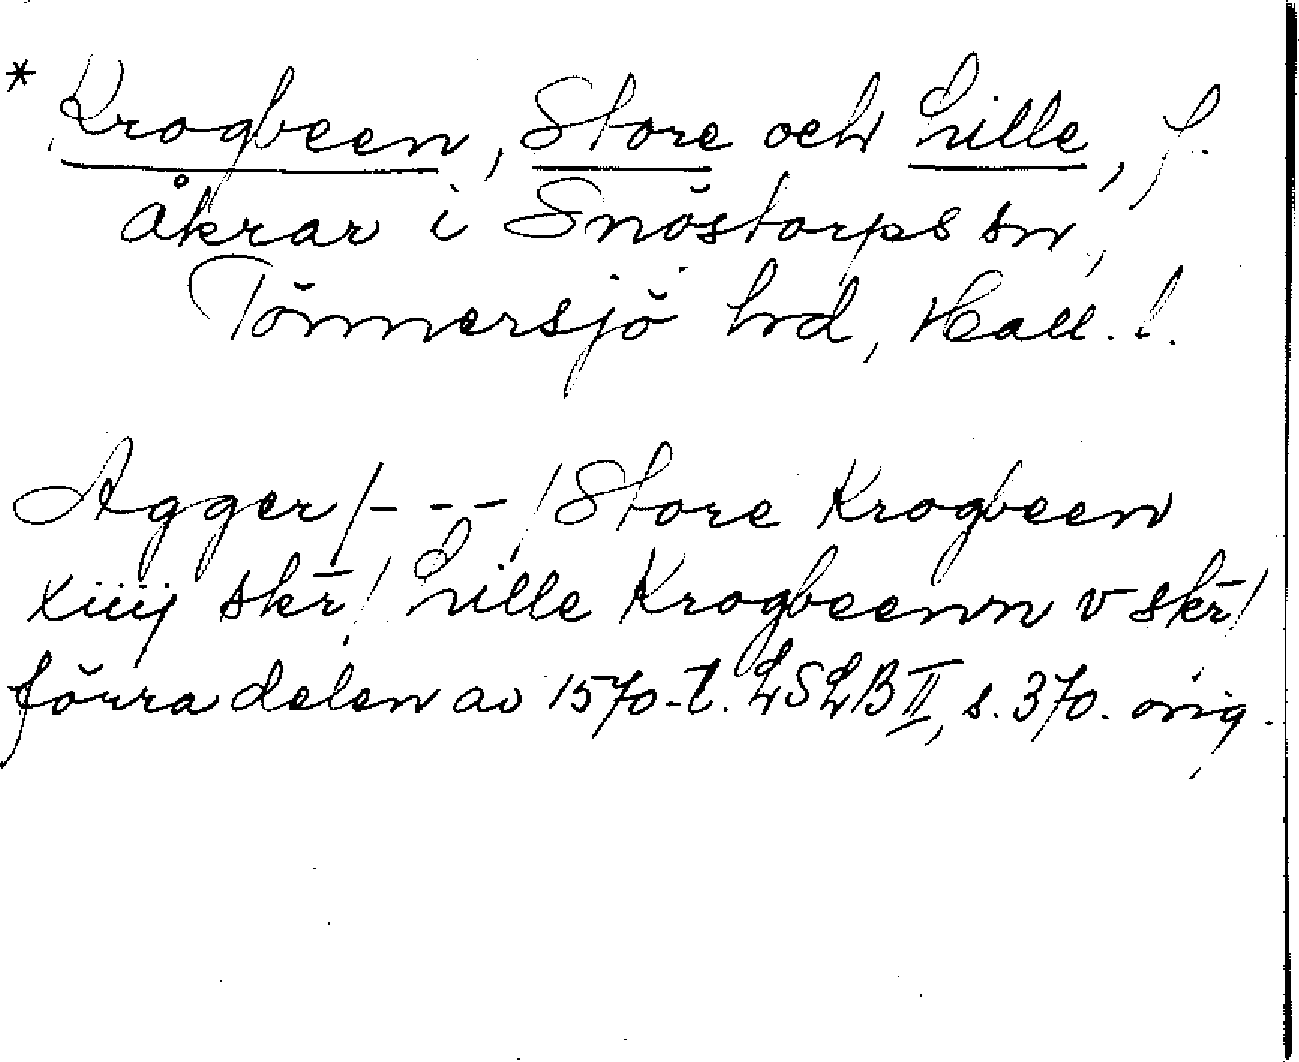 * Krogbeen, Store och Lille, f.
åkrar i Snöstorps sn,
Tönnersjö hd, Hall. l.
Agger /- - - / Store Krogbeen
xiiij skr̄ / Lille Krogbeenn v skr̄ /
förra delen av 1570-t. LSLB II, s. 370. orig.